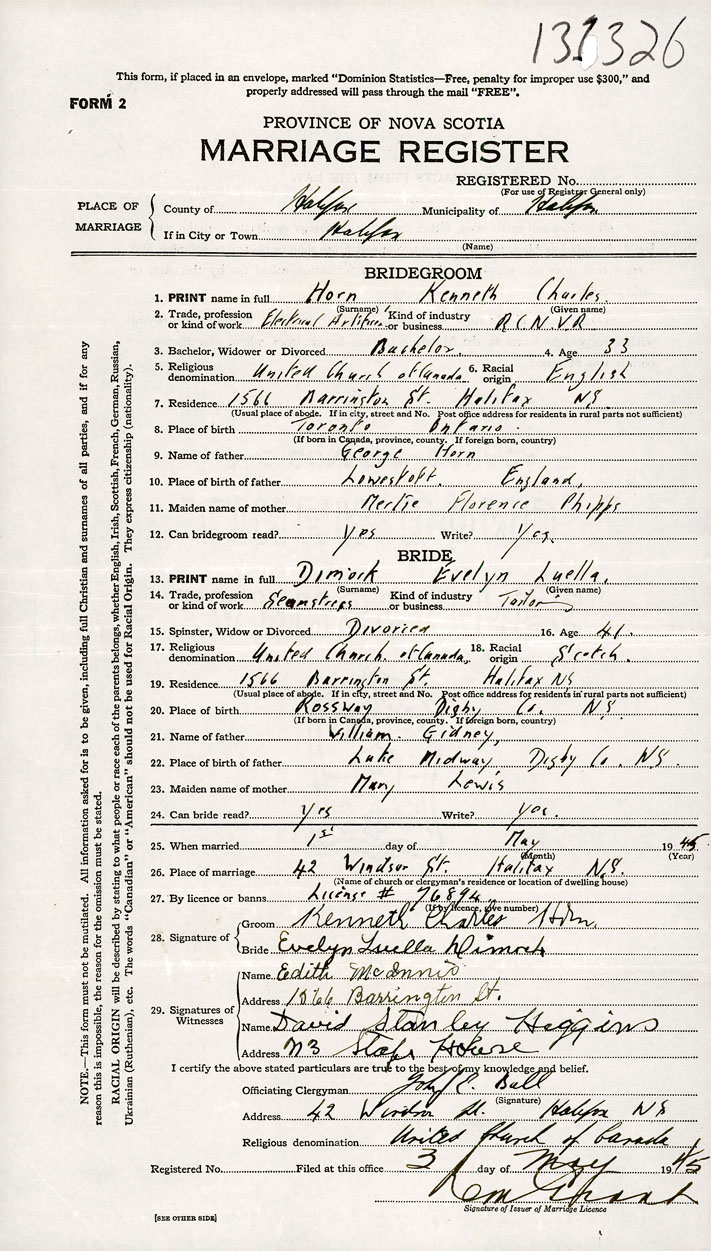 131326
This form, if placed in an envelope, marked "Dominion Statistics—Free, penalty for improper use $300," and
properly addressed will pass through the mail "FREE".
FORM 2
PROVINCE OF NOVA SCOTIA
MARRIAGE REGISTER
REGISTERED No.
(For use of Registrar General only)
PLACE OF MARRIAGE
County of Halifax Municipality of Halifax
If in City or Town Halifax
(Name)
BRIDEGROOM
1. PRINT name in full Horn Kenneth Charles
(Surname) (Given name)
2. Trade, profession or kind of work Electrical Artificer Kind of industry or business R.C.N.V.R
3. Bachelor, Widower or Divorced Bachelor. 4. Age 33
5. Religious denomination United Church of Canada 6. Racial origin English
7. Residence 1566 Barrington St. Halifax NS
(Usual place of abode. If in city, street and No. Post office address for residents in rural parts not sufficient)
8. Place of birth Toronto Ontario
(If born in Canada, province, county. If foreign born, country)
9. Name of father George Horn
10. Place of birth of father Lowestoft. England,
11. Maiden name of mother Mertie Florence Phipps
12. Can bridegroom read? yes Write? Yes.
BRIDE
13. PRINT name in full Dimock Evelyn Luella.
(Surname) (Given name)
14. Trade, profession or kind of work Seamstress Kind of industry or business Tailor
15. Spinster, Widow or Divorced Divorced 16. Age 41.
17. Religious denomination United Church of Canada, 18. Racial origin Scotch.
19. Residence 1566 Barrington St. Halifax NS
(Usual place of abode. If in city, street and No. Post office address for residents in rural parts not sufficient)
20. Place of birth Rossway Digby Co. NS
(If born in Canada, province, county. If foreign born, country)
21. Name of father William Gidney,
22. Place of birth of father Lake Midway Digby Co. NS.
23. Maiden name of mother Mary Lewis
24. Can bride read? yes Write? yes.
25. When married 1st day of May 1945
(Month) (Year)
26. Place of marriage 42 Windsor St. Halifax N.S.
(Name of church or clergyman's residence or location of dwelling house)
27. By licence or banns License # 76894
(If by licence, give number)
28. Signature of
Groom Kenneth Charles Horn.
Bride Evelyn Luella Dimock
29. Signatures of Witnesses
Name Edith McInnis
Address 1566 Barrington St.
Name David Stanley Higgins
Address House
I certify the above stated particulars are true to the best of my knowledge and belief.
Officiating Clergyman John C. Ball
(Signature)
Address 42 Windsor St. Halifax NS
Religious denomination United Church of Canada
Registered No. Filed at this office 3 day of May 1945
Signature of Issuer of Marriage Licence
[SEE OTHER SIDE]
NOTE.—This form must not be mutilated. All information asked for is to be given, including full Christian and surnames of all parties, and if for any
reason this is impossible, the reason for the omission must be stated.
RACIAL ORIGIN will be described by stating to what people or race each of the parents belongs, whether English, Irish, Scottish, French, German, Russian,
Ukrainian (Ruthenian), etc. The words "Canadian" or "American" should not be used for Racial Origin. They express citizenship (nationality).